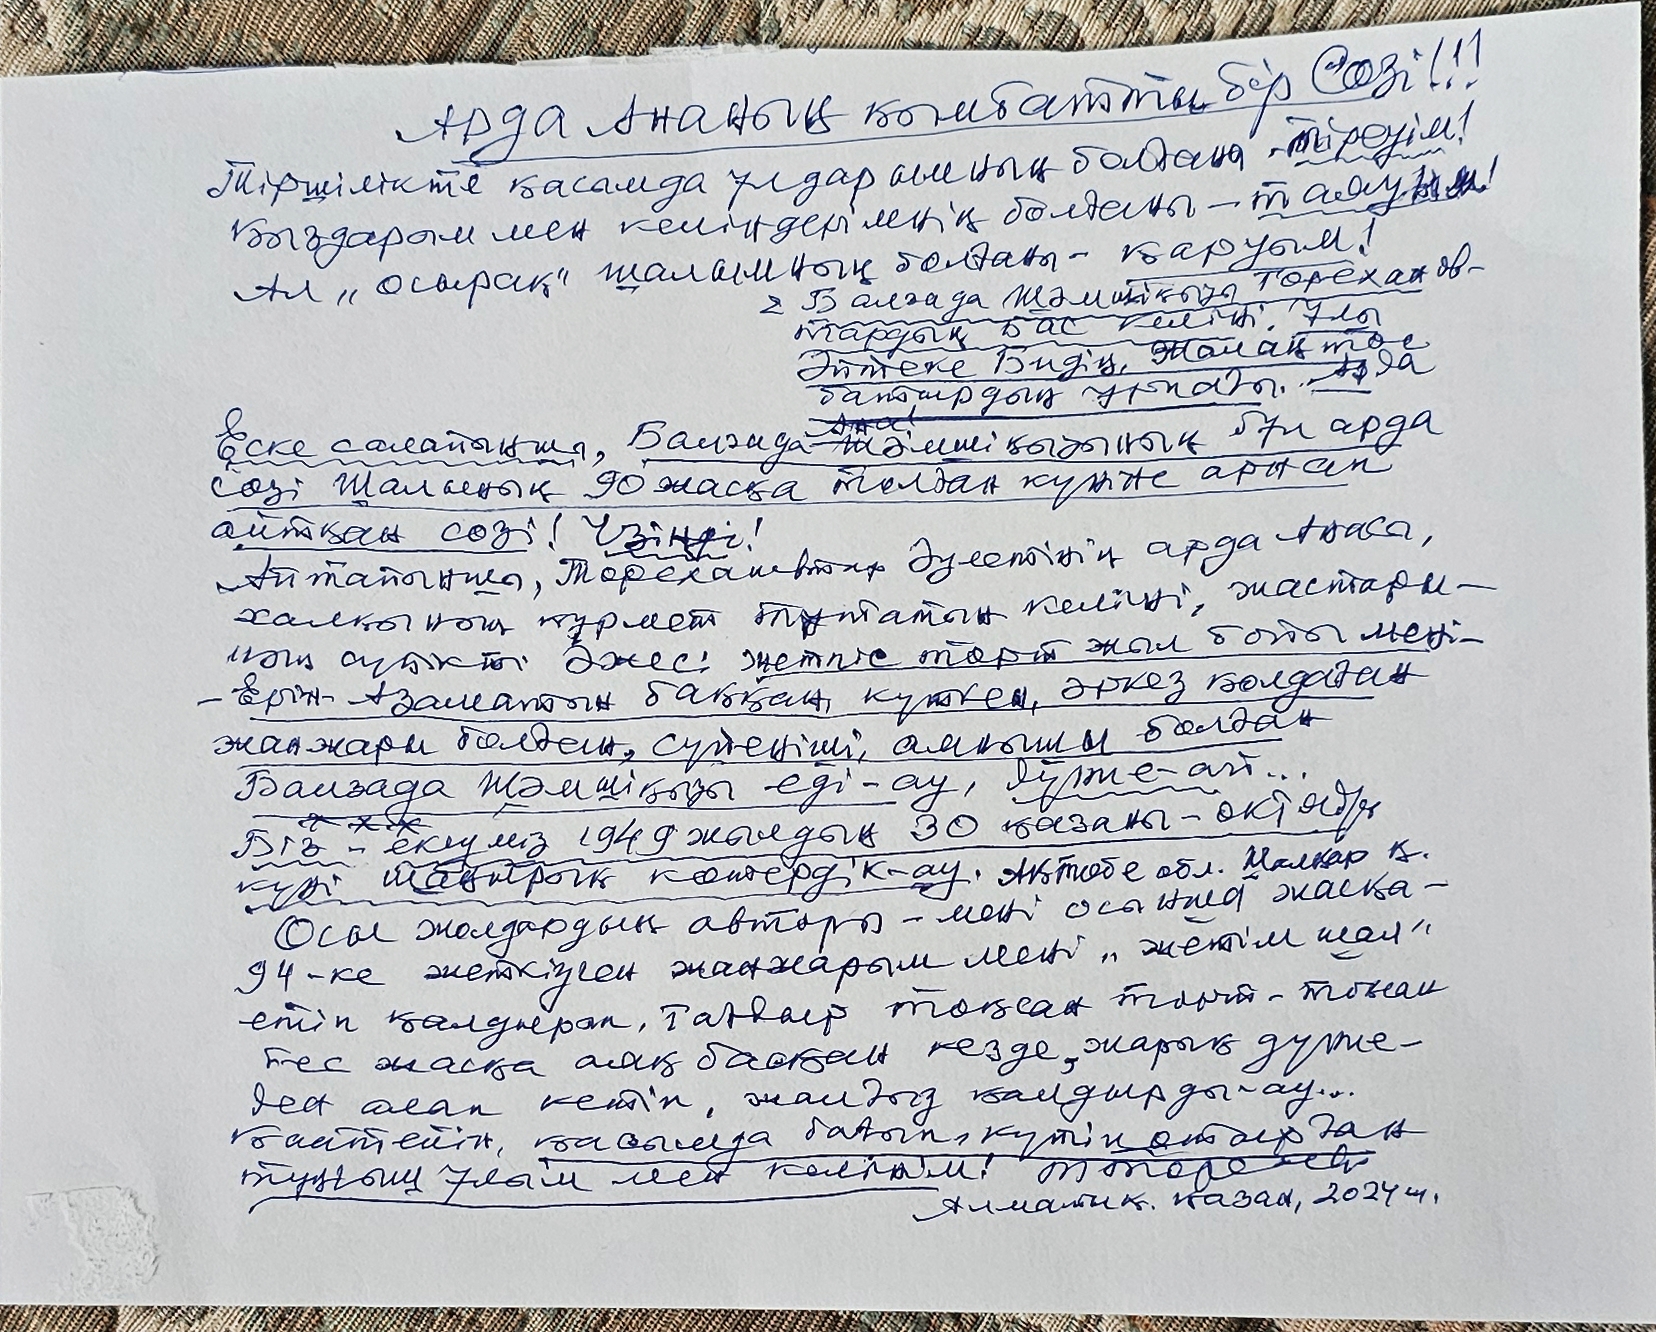 Арда Ананың қымбатты бір Сөзі!!!
Тіршілікте қасымда ұлдарымның болғаны - тірегім!
Қыздарым мен келіндерімнің болғаны –
Ал „осырақ" шалымның болғаны – қаруым!
Балзада Жәмшіқызы Төреханов-
тардың Бас келіні. Ұлы
Әйтеке Бидің, Жалаңтөс
батырдың ұрпағы. Арда
Ана!
Еске салайыншы, Балзада Жәмшіқызының бұл арда
сөзі Шалының 90 жасқа толған күніне арнап
айтқан сөзі! Үзінді!
Айтайыншы, Төрехановтар Әулетінің арда Анасы,
халқының құрмет тұтатын келіні, жастары-
ның сүйікті Әжесі жетпіс төрт жыл бойы мені-
- Ерін- Азаматын баққан, күткен, әркез қолдаған
жанжары болған, сүйеніші, алқышы болған
Балзада Жәмшіқызы еді-ау, дүние-ай...
Біз – екеуміз 1949 жылдың 30 қазаны – октябрь
күні шаңырақ көтердік-ау. Ақтөбе обл. Шалқар қ.
Осы жолдардың авторы – мені осынша жасқа –
94-ке жеткізген жанжарым мені „жетім шал"
етіп қалдырып, Тағдыр тоқсан төрт - тоқсан
бес жасқа аяқ басқан кезде, жарық дүние-
ден алып кетіп, жалғыз қалдырды-ау...
Қайтейін, қасымда бағып, күтіп отырған
тұңғыш Ұлым мен келінім!
Алматы қ. қазан, 2024 ж.